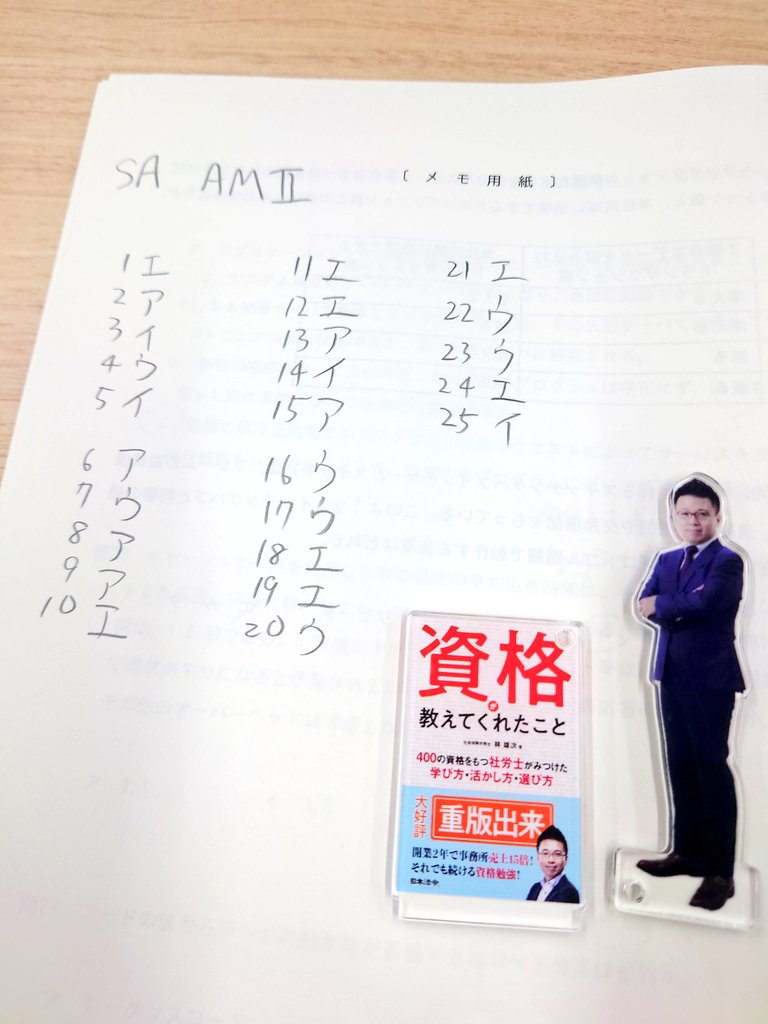 SA AMⅡ
〔メモ用紙〕
1 エ
2 ア
3 イ
4 ウ
5 イ
6 ア
7 ウ
8 ア
9 ア
10 エ
11 エ
12 エ
13 ア
14 イ
15 ア
16 ウ
17 ウ
18 エ
19 エ
20 ウ
21 エ
22 ウ
23 ウ
24 エ
25 イ
資格
が
教えてくれたこと
社会保険労務士 林 雄次 著
400の資格をもつ社労士がみつけた
学び方・活かし方・選び方
大好評
重版出来
開業2年で事務所売上15倍!
それでも続ける資格勉強!
日本法令